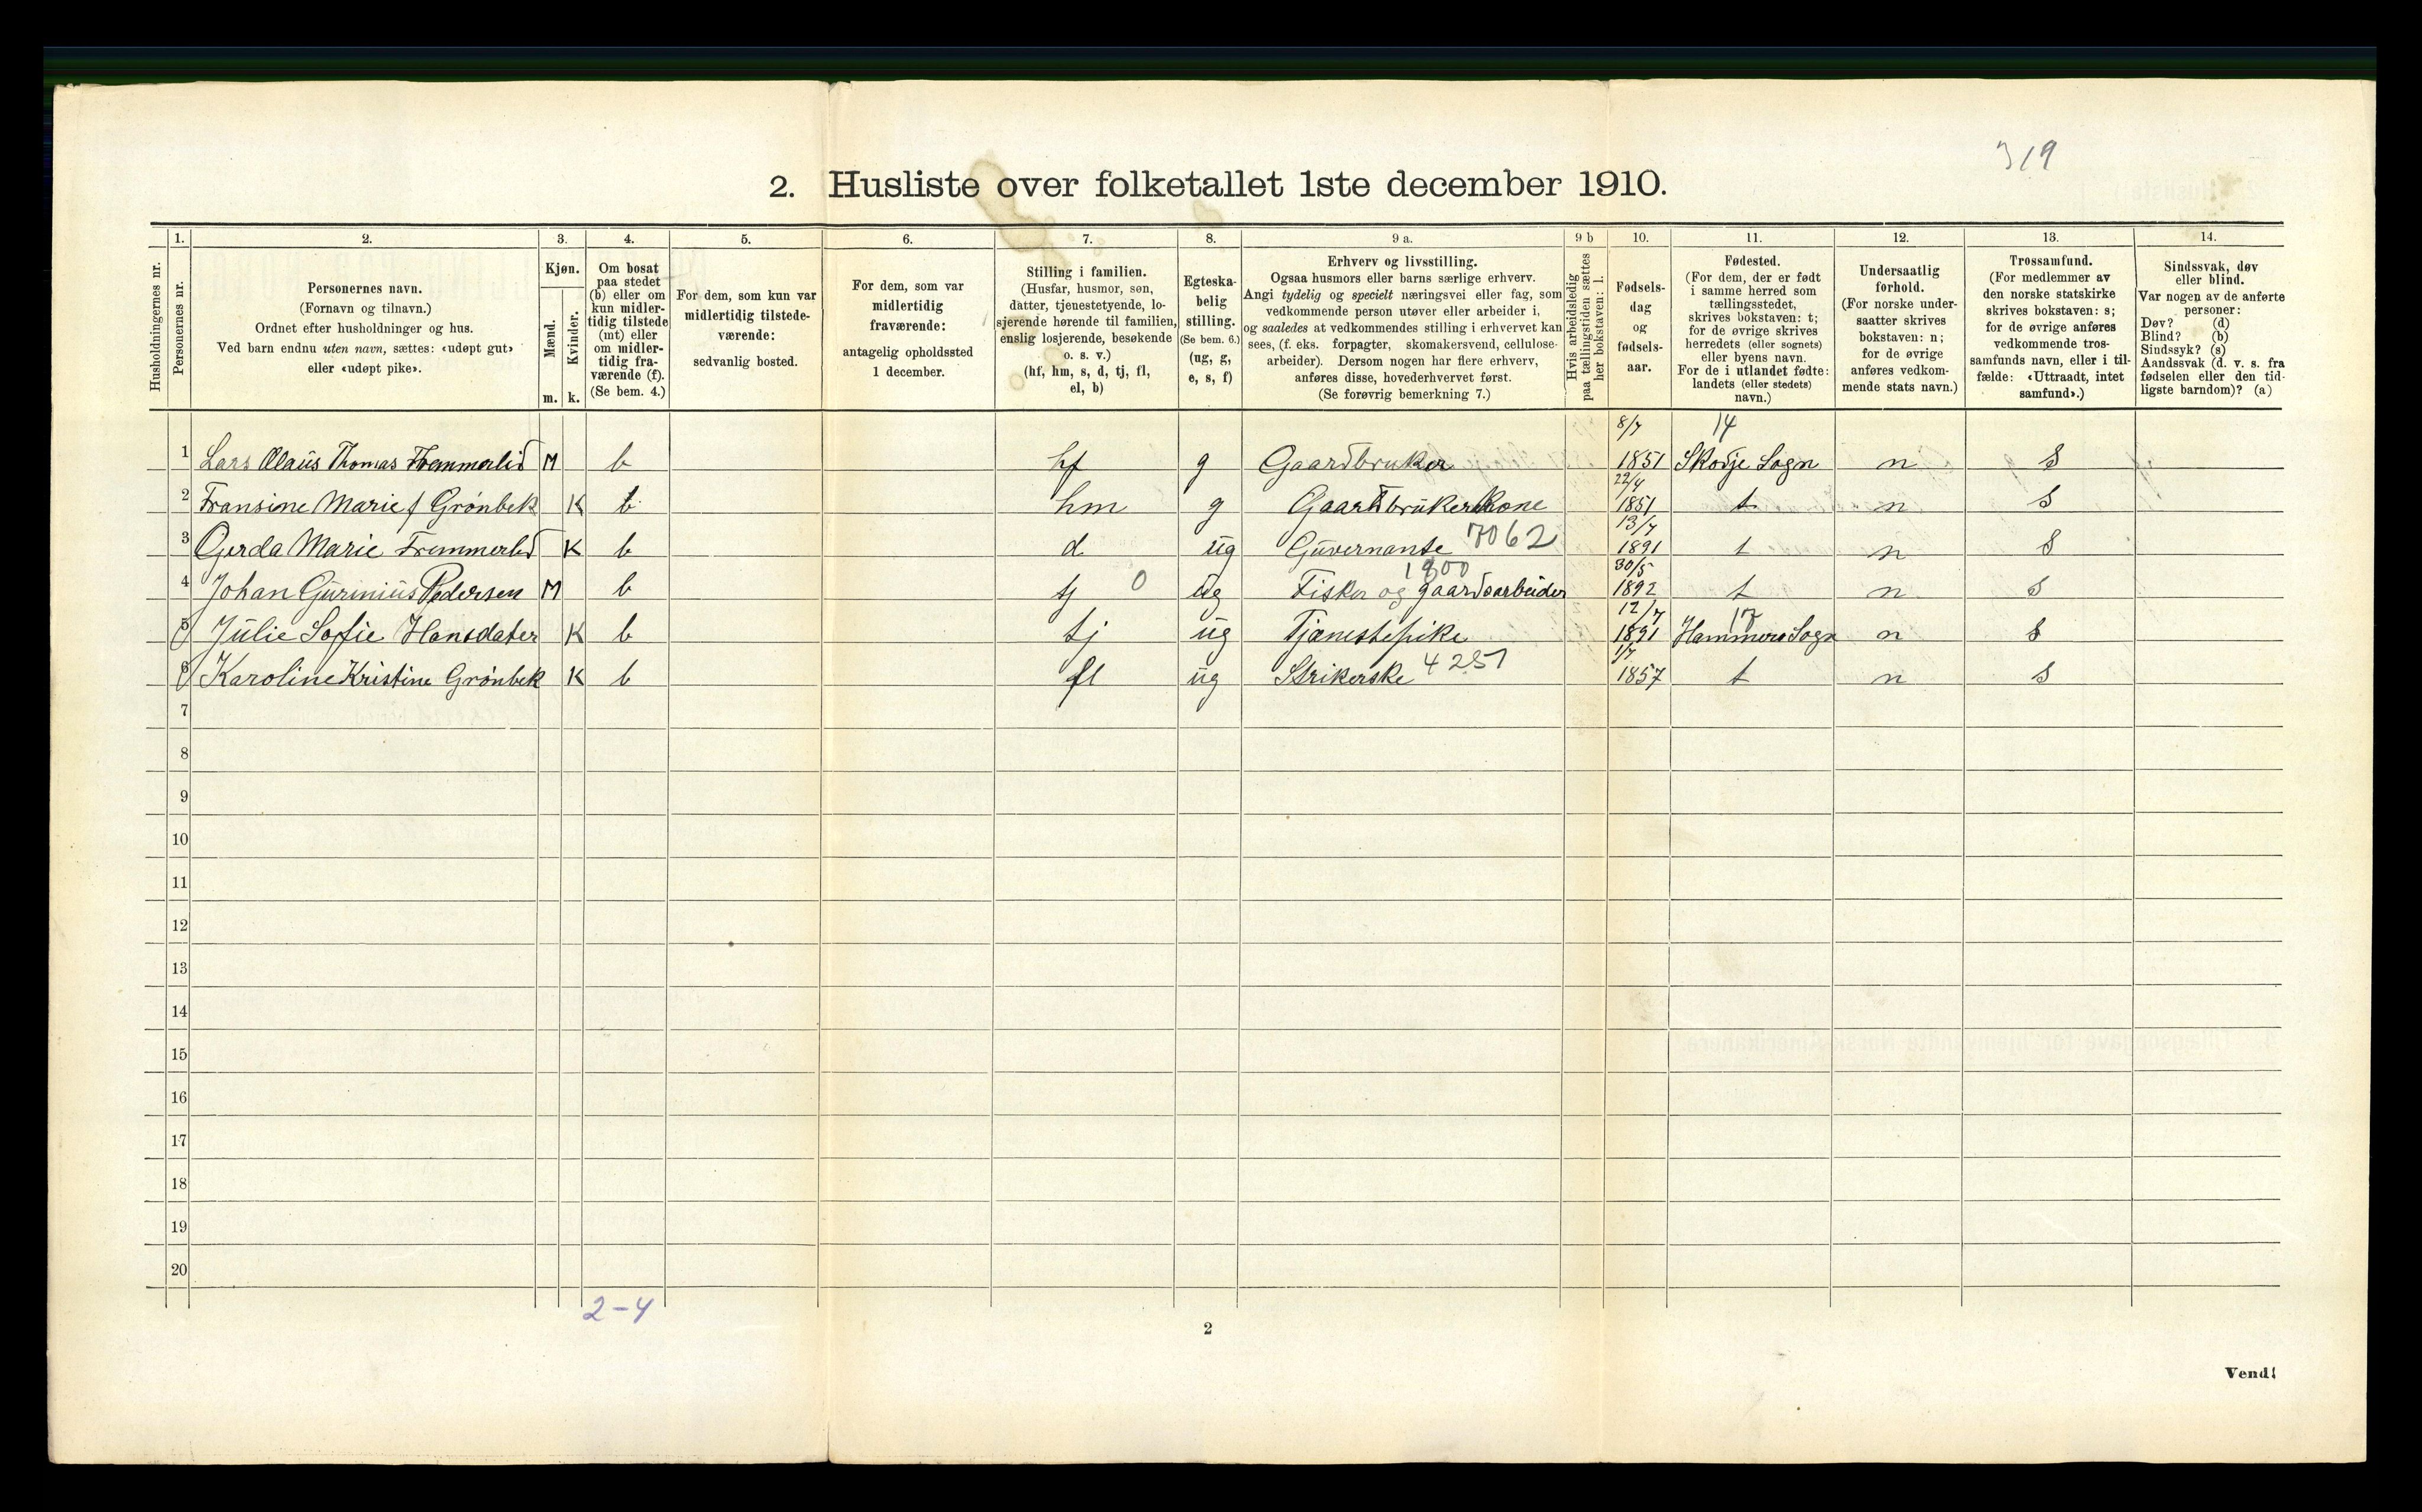 319
2. Husliste over folketallet 1ste december 1910.
Husholdningernes nr.
1.
Personernes nr.
2.
Personernes navn.
(Fornavn og tilnavn.)
Ordnet efter husholdninger og hus.
Ved barn endnu uten navn, sættes: «udøpt gut»
eller «udøpt pike».
3.
Kjøn.
Mænd.
Kvinder.
m. k.
4.
Om bosat
paa stedet
(b) eller om
kun midler-
tidig tilstede
(mt) eller
om midler-
tidig fra-
værende (f).
(Se bem. 4.)
5.
For dem, som kun var
midlertidig tilstede-
værende:
sedvanlig bosted.
6.
For dem, som var
midlertidig
fraværende:
antagelig opholdssted
1 december.
7.
Stilling i familien.
(Husfar, husmor, søn,
datter, tjenestetyende, lo-
sjerende hørende til familien,
enslig losjerende, besøkende
o. s. v.)
(hf, hm, s, d, tj, fl,
el, b)
8.
Egteska-
belig
stilling.
(Se bem. 6.)
(ug, g,
e, s, f)
9 a.
Erhverv og livsstilling.
Ogsaa husmors eller barns særlige erhverv.
Angi tydelig og specielt næringsvei eller fag, som
vedkommende person utøver eller arbeider i,
og saaledes at vedkommendes stilling i erhvervet kan
sees, (f. eks. forpagter, skomakersvend, cellulose-
arbeider). Dersom nogen har flere erhverv,
anføres disse, hovederhvervet først.
(Se forøvrig bemerkning 7.)
9 b
Hvis arbeidsledig
paa tællingstiden sættes
her bokstaven: l.
10.
Fødsels-
dag
og
fødsels-
aar.
11.
Fødested.
(For dem, der er født
i samme herred som
tællingsstedet,
skrives bokstaven: t;
for de øvrige skrives
herredets (eller sognets)
eller byens navn.
For de i utlandet fødte:
landets (eller stedets)
navn.)
12.
Undersaatlig
forhold.
(For norske under-
saatter skrives
bokstaven: n;
for de øvrige
anføres vedkom-
mende stats navn.)
13.
Trossamfund.
(For medlemmer av
den norske statskirke
skrives bokstaven: s;
for de øvrige anføres
vedkommende tros-
samfunds navn, eller i til-
fælde: «Uttraadt, intet
samfund».)
14.
Sindssvak, døv
eller blind.
Var nogen av de anførte
personer:
Døv? (d)
Blind? (b)
Sindssyk? (s)
Aandssvak (d. v. s. fra
fødselen eller den tid-
ligste barndom)? (a)
8/7 14
1 Lars Olaus Thomas Fremmerlid M b hf g Gaardbruker 1851 Skodje Sogn n S
22/4
2 Fransine Marie f Grønbek K b hm g Gaardbrukerkone 1851 t n S
13/7
3 Gerda Marie Fremmerlid K b d ug Guvernante 7062 1891 t n S
1800 30/5
4 Johan Gurinius Pedersen M b tj 0 ug Fisker og gaardsarbeider 1892 t n S
12/7 17
5 Julie Sofie Hansdater K b tj ug Tjænestepike 1891 Hammers Sogn n S
1/7
6 Karoline Kristine Grønbek K b fl ug Strikerske 4251 1857 t n S
7
8
9
10
11
12
13
14
15
16
17
18
19
20
2-4
2
Vend!